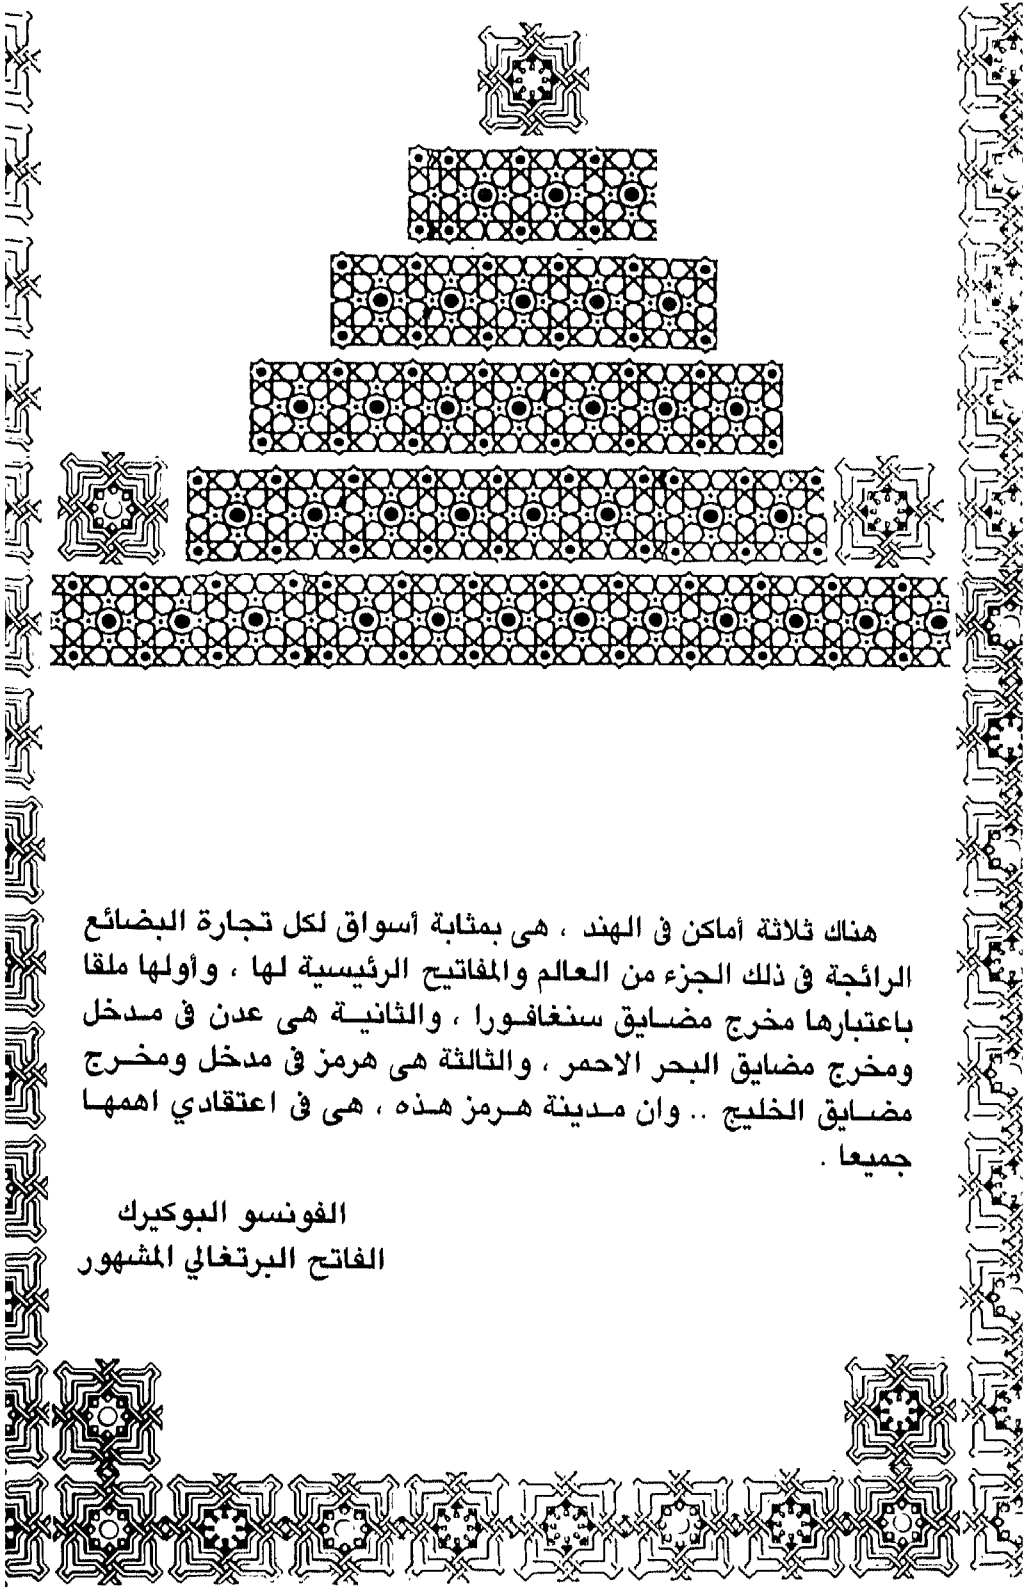 هناك ثلاثة أماكن فى الهند ، هى بمثابة أسواق لكل تجارة البضائع
الرائجة فى ذلك الجزء من العالم والمفاتيح الرئيسية لها ، وأولها ملقا
باعتبارها مخرج مضايق سنغافورا ، والثانية هى عدن فى مدخل
ومخرج مضايق البحر الاحمر ، والثالثة هى هرمز فى مدخل ومخرج
مضايق الخليج .. وان مدينة هرمز هذه ، هى فى اعتقادي اهمها
جميعا .
الفونسو البوكيرك
الفاتح البرتغالي المشهور